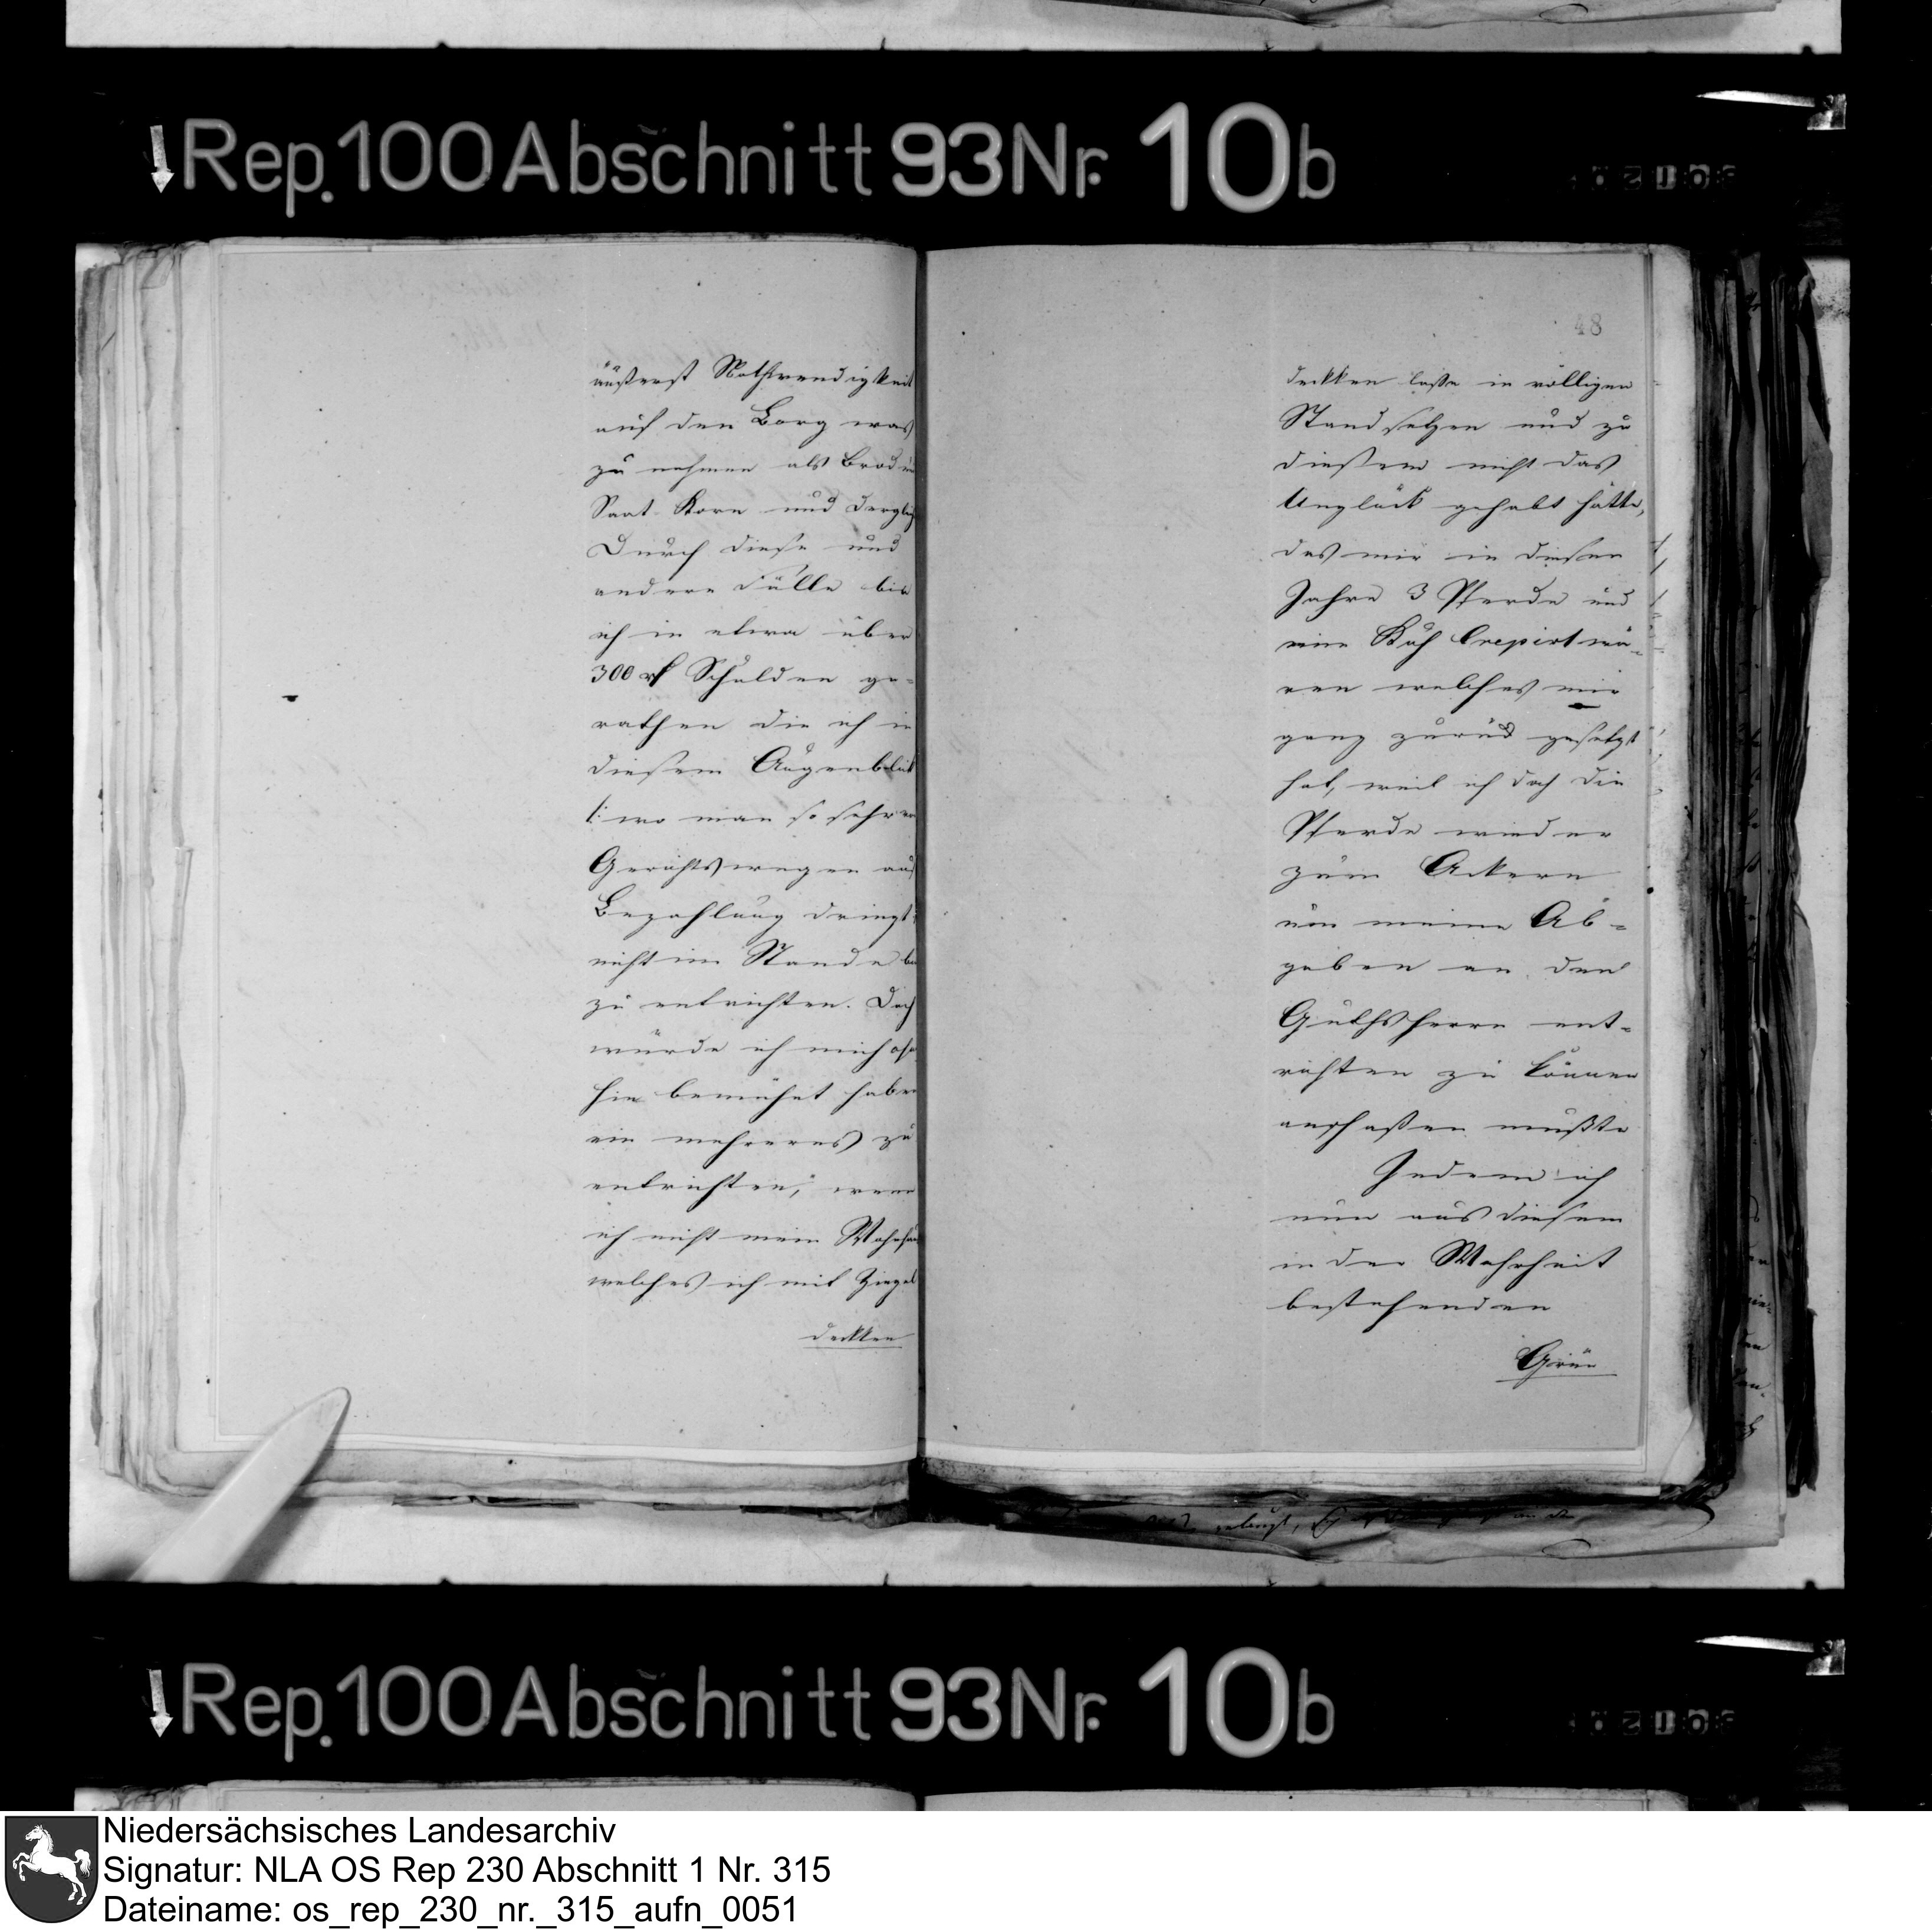 Rep. 100 Abschnitt 93 Nr. 10b
äußerst Nothwendigkeit
auf den Borg was
zu nehmen als Brod und
Saat Korn und dergleich
Durch diese und
andere Fälle bin
ich in etwa über
300 rf Schulden ge-
rathen die ich in
diesem Augenblick
/: wo man so sehr
Gerichtswegen auf
Bezahlung dringt :/
nicht im Stande bin
zu entrichten. Doch
würde ich mich ohne
hin bemühet haben
ein mehreres zu
entrichten, wenn
ich nicht mein Wohnhaus
welches ich mit Ziegel
deckken
48
deckken laße in völligen
Stand setzen und zu
dießem nicht das
Unglück gehabt hätte,
das mir in diesen
Jahre 3 Pferde und
eine Kuh Crepirt wä-
ren welches mir
ganz zurück gesetzt
hat, weil ich doch die
Pferde wieder
zum Ackern
um meine Ab-
gaben an den
Guthsherrn ent-
richten zu können
anschaßen mußte
Indem ich
nun aus diesem
in der Wahrheit
bestehenden
Grün
Rep. 100 Abschnitt 93 Nr. 10b
Niedersächsisches Landesarchiv
Signatur: NLA OS Rep 230 Abschnitt 1 Nr. 315
Dateiname: os_rep_230_nr._315_aufn_0051